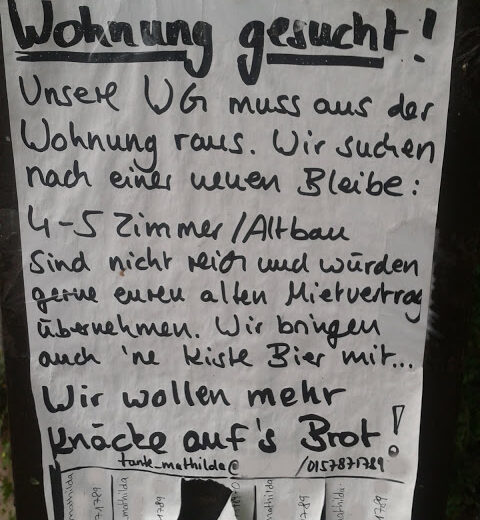 Wohnung gesucht!
Unsere WG muss aus der
Wohnung raus. Wir suchen
nach einer neuen Bleibe:
4-5 Zimmer/Altbau
Sind nicht reich und würden
gerne euren alten Mietvertrag
übernehmen. Wir bringen
auch 'ne Kiste Bier mit...
Wir wollen mehr
Knäcke auf's Brot!
tante_mathilda@ /0157871789